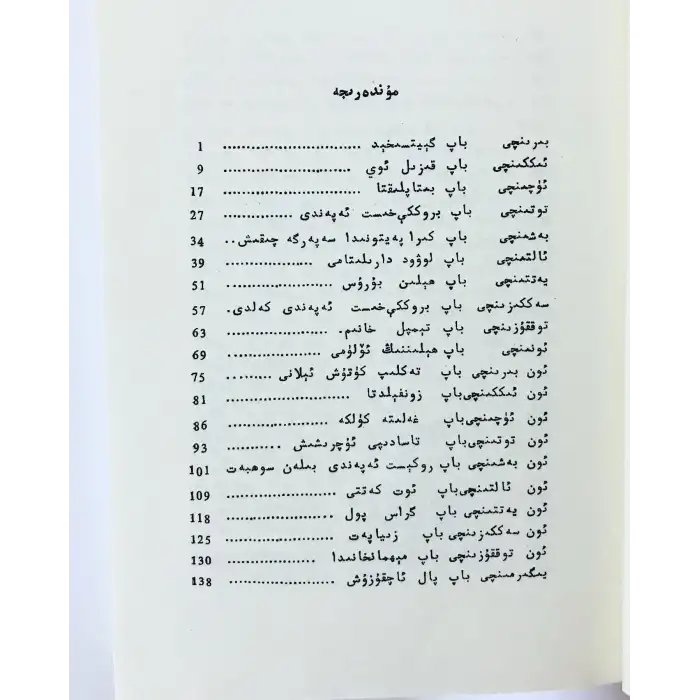 مۇندەرىجە
بىرىنچى باپ گېيتسخېد ........ 1
ئىككىنچى باپ قىزىل ئوي ........ 9
ئۈچىنچى باپ بىتاپلىقتا ........ 17
توتىنچى باپ بروككېخىست ئەپەندى ........ 27
بەشىنچى باپ كىرا پەيتونىدا سەپەرگە چىقىش.. 34
ئالتىنچى باپ لوۋود دارىلىتامى ........ 39
يەتتىنچى باپ ھېلىن بۇرۇس ........ 51
سەككىزىنچى باپ بروككېخىست ئەپەندى كەلدى. 57
توققۇزىنچى باپ تېمپل خانىم. ........ 63
ئونىنچى باپ ھېلىننىڭ ئۆلۈمى ........ 69
ئون بىرىنچى باپ تەكلىپ كۈتۈش ئېلانى ........ 75
ئون ئىككىنچى باپ زونفېلدتا ........ 81
ئون ئۈچىنچى باپ غەلىتە كۈلكە ........ 86
ئون توتىنچى باپ تاسادىپى ئۈچرىشىش ........ 93
ئون بەشىنچى باپ روكېست ئەپەندى بىلەن سوھبەت 101
ئون ئالتىنچى باپ ئوت كەتتى ........ 109
ئون يەتتىنچى باپ گراس پول ........ 118
ئون سەككىزىنچى باپ زىياپەت ........ 125
ئون توققۇزىنچى باپ مېھمانخانىدا ........ 130
يىگىرمىنچى باپ پال ئاچقۇزۇش ........ 138